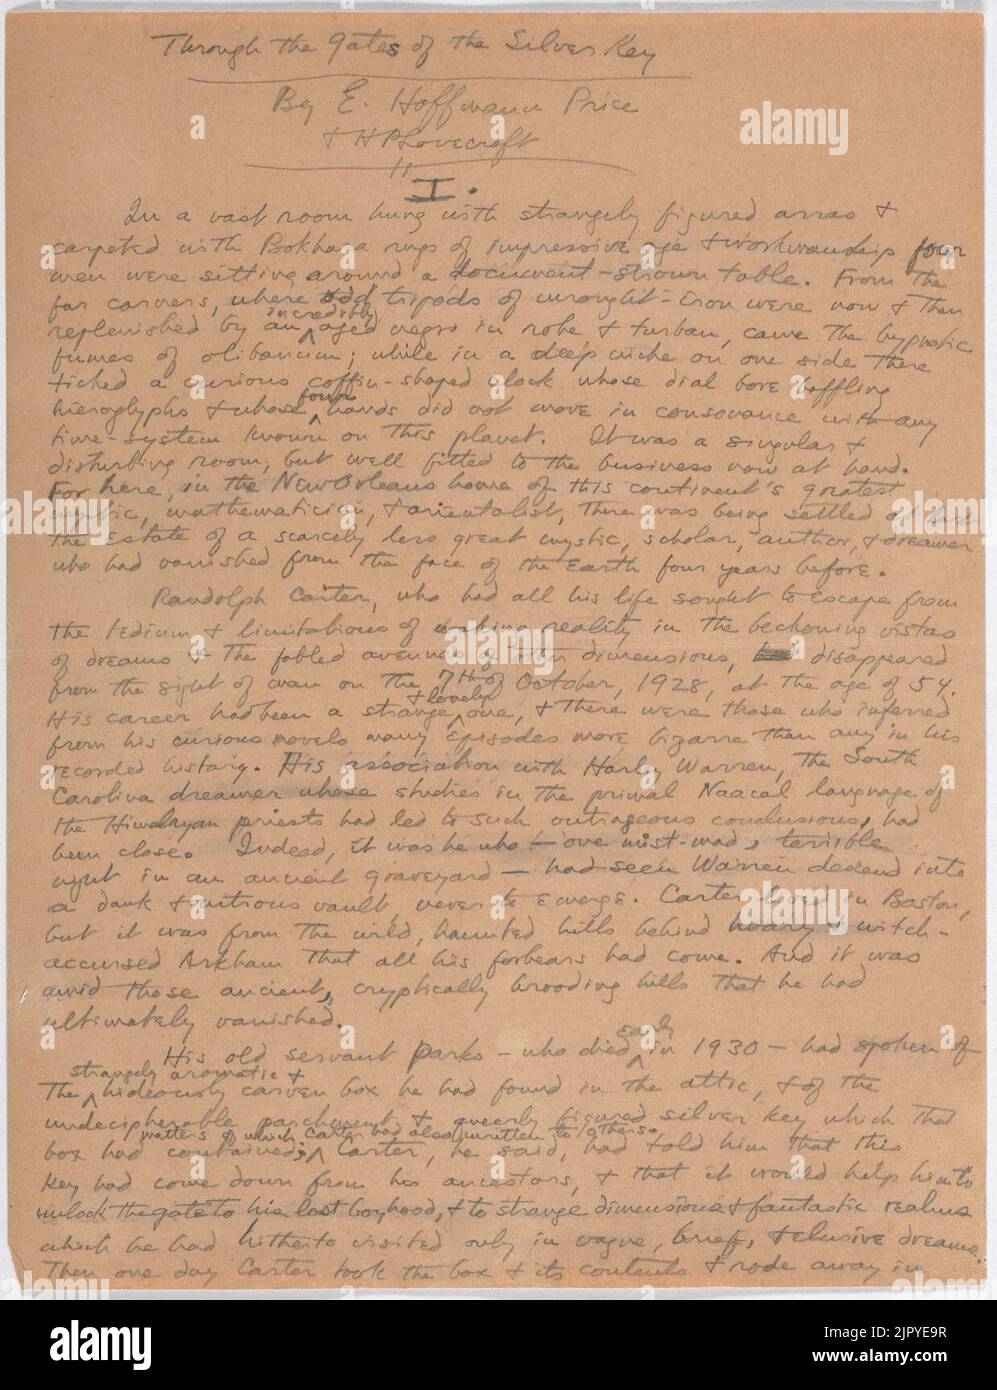 Through the Gates of the Silver Key
By E. Hoffmann Price
& H P Lovecraft
I.
In a vast room hung with strangely figured arras &
carpeted with Bokhara rugs of impressive age & workmanship four
men were sitting around a document-strown table. From the
far corners, where odd tripods of wrought-iron were now & then
replenished by an incredibly aged negro in robe & turban, came the hypnotic
fumes of olibanum; while in a deep niche on one side there
ticked a curious coffin-shaped clock whose dial bore baffling
hieroglyphs & whose four hands did not move in consonance with any
time-system known on this planet. It was a singular &
disturbing room, but well fitted to the business now at hand.
For here, in the New Orleans home of this continent's greatest
mystic, mathematician, & orientalist, there was being settled at last
the estate of a scarcely less great mystic, scholar, author, & dreamer
who had vanished from the face of the earth four years before.
Randolph Carter, who had all his life sought to escape from
the tedium & limitations of waking reality in the beckoning vistas
of dreams & the fabled avenues of other dimensions, disappeared
from the sight of man on the 7th of October, 1928, at the age of 54.
His career had been a strange & lonely one, & there were those who inferred
from his curious novels many episodes more bizarre than any in his
recorded history. His association with Harley Warren, the South
Carolina dreamer whose studies in the primal Naacal language of
the Himalayan priests had led to such outrageous conclusions, had
been close. Indeed, it was he who — one mist-mad, terrible
night in an ancient graveyard — had seen Warren descend into
a dank & nitrous vault, never to emerge. Carter lived in Boston,
but it was from the wild, haunted hills behind hoary & witch-
accursed Arkham that all his forbears had come. And it was
amid those ancient, cryptically brooding hills that he had
ultimately vanished.
His old servant Parks – who died early in 1930 – had spoken of
the strangely aromatic & hideously carven box he had found in the attic, & of the
undecipherable parchment & queerly figured silver key which that
box had contained; matters of which Carter had also written to others. Carter, he said, had told him that this
key had come down from his ancestors, & that it would help him to
unlock the gate to his lost boyhood, & to strange dimensions & fantastic realms
which he had hitherto visited only in vague, brief, & elusive dreams.
Then one day Carter took the box & its contents & rode away in
alamy
2JPYE9R
www.alamy.com